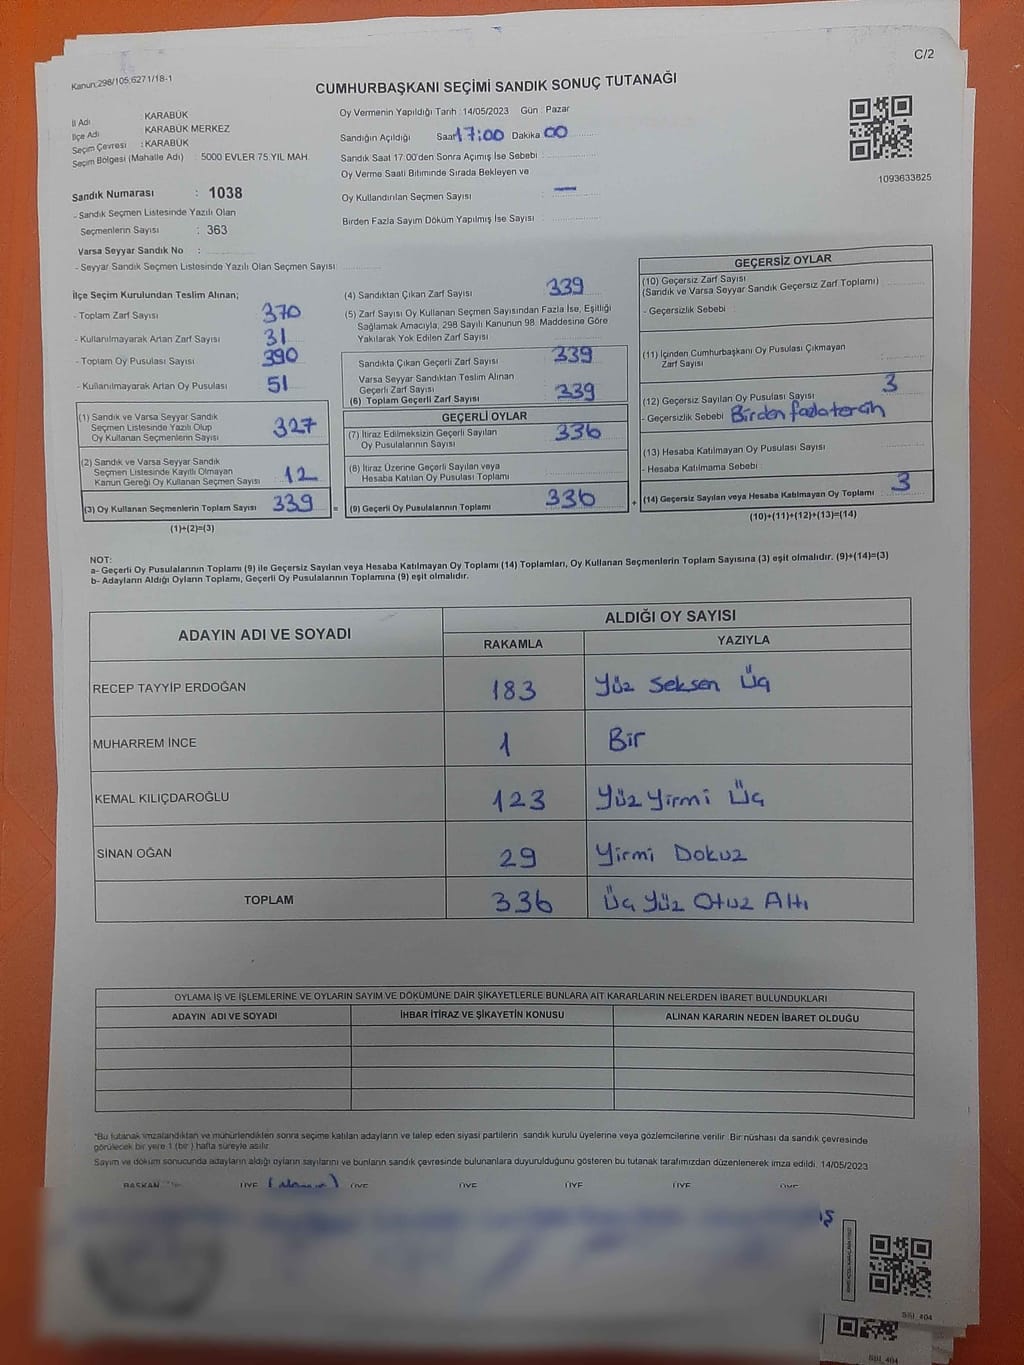 C/2
Kanun:298/105,6271/18-1
CUMHURBAŞKANI SEÇİMİ SANDIK SONUÇ TUTANAĞI
İl Adı KARABÜK
İlçe Adı KARABÜK MERKEZ
Seçim Çevresi : KARABÜK
Seçim Bölgesi (Mahalle Adı) : 5000 EVLER 75.YIL MAH.
Oy Vermenin Yapıldığı Tarih : 14/05/2023 Gün : Pazar
Sandığın Açıldığı Saat 17:00 Dakika 00
Sandık Saat 17:00'den Sonra Açımış İse Sebebi :
Oy Verme Saati Bitiminde Sırada Bekleyen ve
Oy Kullandırılan Seçmen Sayısı : —
Birden Fazla Sayım Döküm Yapılmış İse Sayısı :
1093633825
Sandık Numarası : 1038
- Sandık Seçmen Listesinde Yazılı Olan
Seçmenlerin Sayısı : 363
Varsa Seyyar Sandık No :
- Seyyar Sandık Seçmen Listesinde Yazılı Olan Seçmen Sayısı:
İlçe Seçim Kurulundan Teslim Alınan;
- Toplam Zarf Sayısı 370
- Kullanılmayarak Artan Zarf Sayısı 31
- Toplam Oy Pusulası Sayısı 390
- Kullanılmayarak Artan Oy Pusulası 51
(1) Sandık ve Varsa Seyyar Sandık
Seçmen Listesinde Yazılı Olup
Oy Kullanan Seçmenlerin Sayısı 327
(2) Sandık ve Varsa Seyyar Sandık
Seçmen Listesinde Kayıtlı Olmayan
Kanun Gereği Oy Kullanan Seçmen Sayısı 12
(3) Oy Kullanan Seçmenlerin Toplam Sayısı 339
=
(1)+(2)=(3)
(4) Sandıktan Çıkan Zarf Sayısı 339
(5) Zarf Sayısı Oy Kullanan Seçmen Sayısından Fazla İse, Eşitliği
Sağlamak Amacıyla, 298 Sayılı Kanunun 98. Maddesine Göre
Yakılarak Yok Edilen Zarf Sayısı
Sandıkta Çıkan Geçerli Zarf Sayısı 339
Varsa Seyyar Sandıktan Teslim Alınan
Geçerli Zarf Sayısı
(6) Toplam Geçerli Zarf Sayısı 339
GEÇERLİ OYLAR
(7) İtiraz Edilmeksizin Geçerli Sayılan
Oy Pusulalarının Sayısı 336
(8) İtiraz Üzerine Geçerli Sayılan veya
Hesaba Katılan Oy Pusulası Toplamı
(9) Geçerli Oy Pusulalarının Toplamı 336
+
GEÇERSİZ OYLAR
(10) Geçersiz Zarf Sayısı
(Sandık ve Varsa Seyyar Sandık Geçersiz Zarf Toplamı)
- Geçersizlik Sebebi :
(11) İçinden Cumhurbaşkanı Oy Pusulası Çıkmayan
Zarf Sayısı
(12) Geçersiz Sayılan Oy Pusulası Sayısı 3
- Geçersizlik Sebebi Birden fazla tercih
(13) Hesaba Katılmayan Oy Pusulası Sayısı
- Hesaba Katılmama Sebebi :
(14) Geçersiz Sayılan veya Hesaba Katılmayan Oy Toplamı 3
(10)+(11)+(12)+(13)=(14)
NOT:
a- Geçerli Oy Pusulalarının Toplamı (9) ile Geçersiz Sayılan veya Hesaba Katılmayan Oy Toplamı (14) Toplamları, Oy Kullanan Seçmenlerin Toplam Sayısına (3) eşit olmalıdır. (9)+(14)=(3)
b- Adayların Aldığı Oyların Toplamı, Geçerli Oy Pusulalarının Toplamına (9) eşit olmalıdır.
ADAYIN ADI VE SOYADI
ALDIĞI OY SAYISI
RAKAMLA YAZIYLA
RECEP TAYYİP ERDOĞAN 183 Yüz Seksen Üç
MUHARREM İNCE 1 Bir
KEMAL KILIÇDAROĞLU 123 Yüz Yirmi Üç
SİNAN OĞAN 29 Yirmi Dokuz
TOPLAM 336 Üç Yüz Otuz Altı
OYLAMA İŞ VE İŞLEMLERİNE VE OYLARIN SAYIM VE DÖKÜMÜNE DAİR ŞİKAYETLERLE BUNLARA AİT KARARLARIN NELERDEN İBARET BULUNDUKLARI
ADAYIN ADI VE SOYADI İHBAR İTİRAZ VE ŞİKAYETİN KONUSU ALINAN KARARIN NEDEN İBARET OLDUĞU
*Bu tutanak imzalandıktan ve mühürlendikten sonra seçime katılan adayların ve talep eden siyasi partilerin sandık kurulu üyelerine veya gözlemcilerine verilir. Bir nüshası da sandık çevresinde
görülecek bir yere 1 (bir ) hafta süreyle asılır.
Sayım ve döküm sonucunda adayların aldığı oyların sayılarını ve bunların sandık çevresinde bulunanlara duyurulduğunu gösteren bu tutanak tarafımızdan düzenlenerek imza edildi. 14/05/2023
BAŞKAN ÜYE ÜYE ÜYE ÜYE ÜYE ÜYE